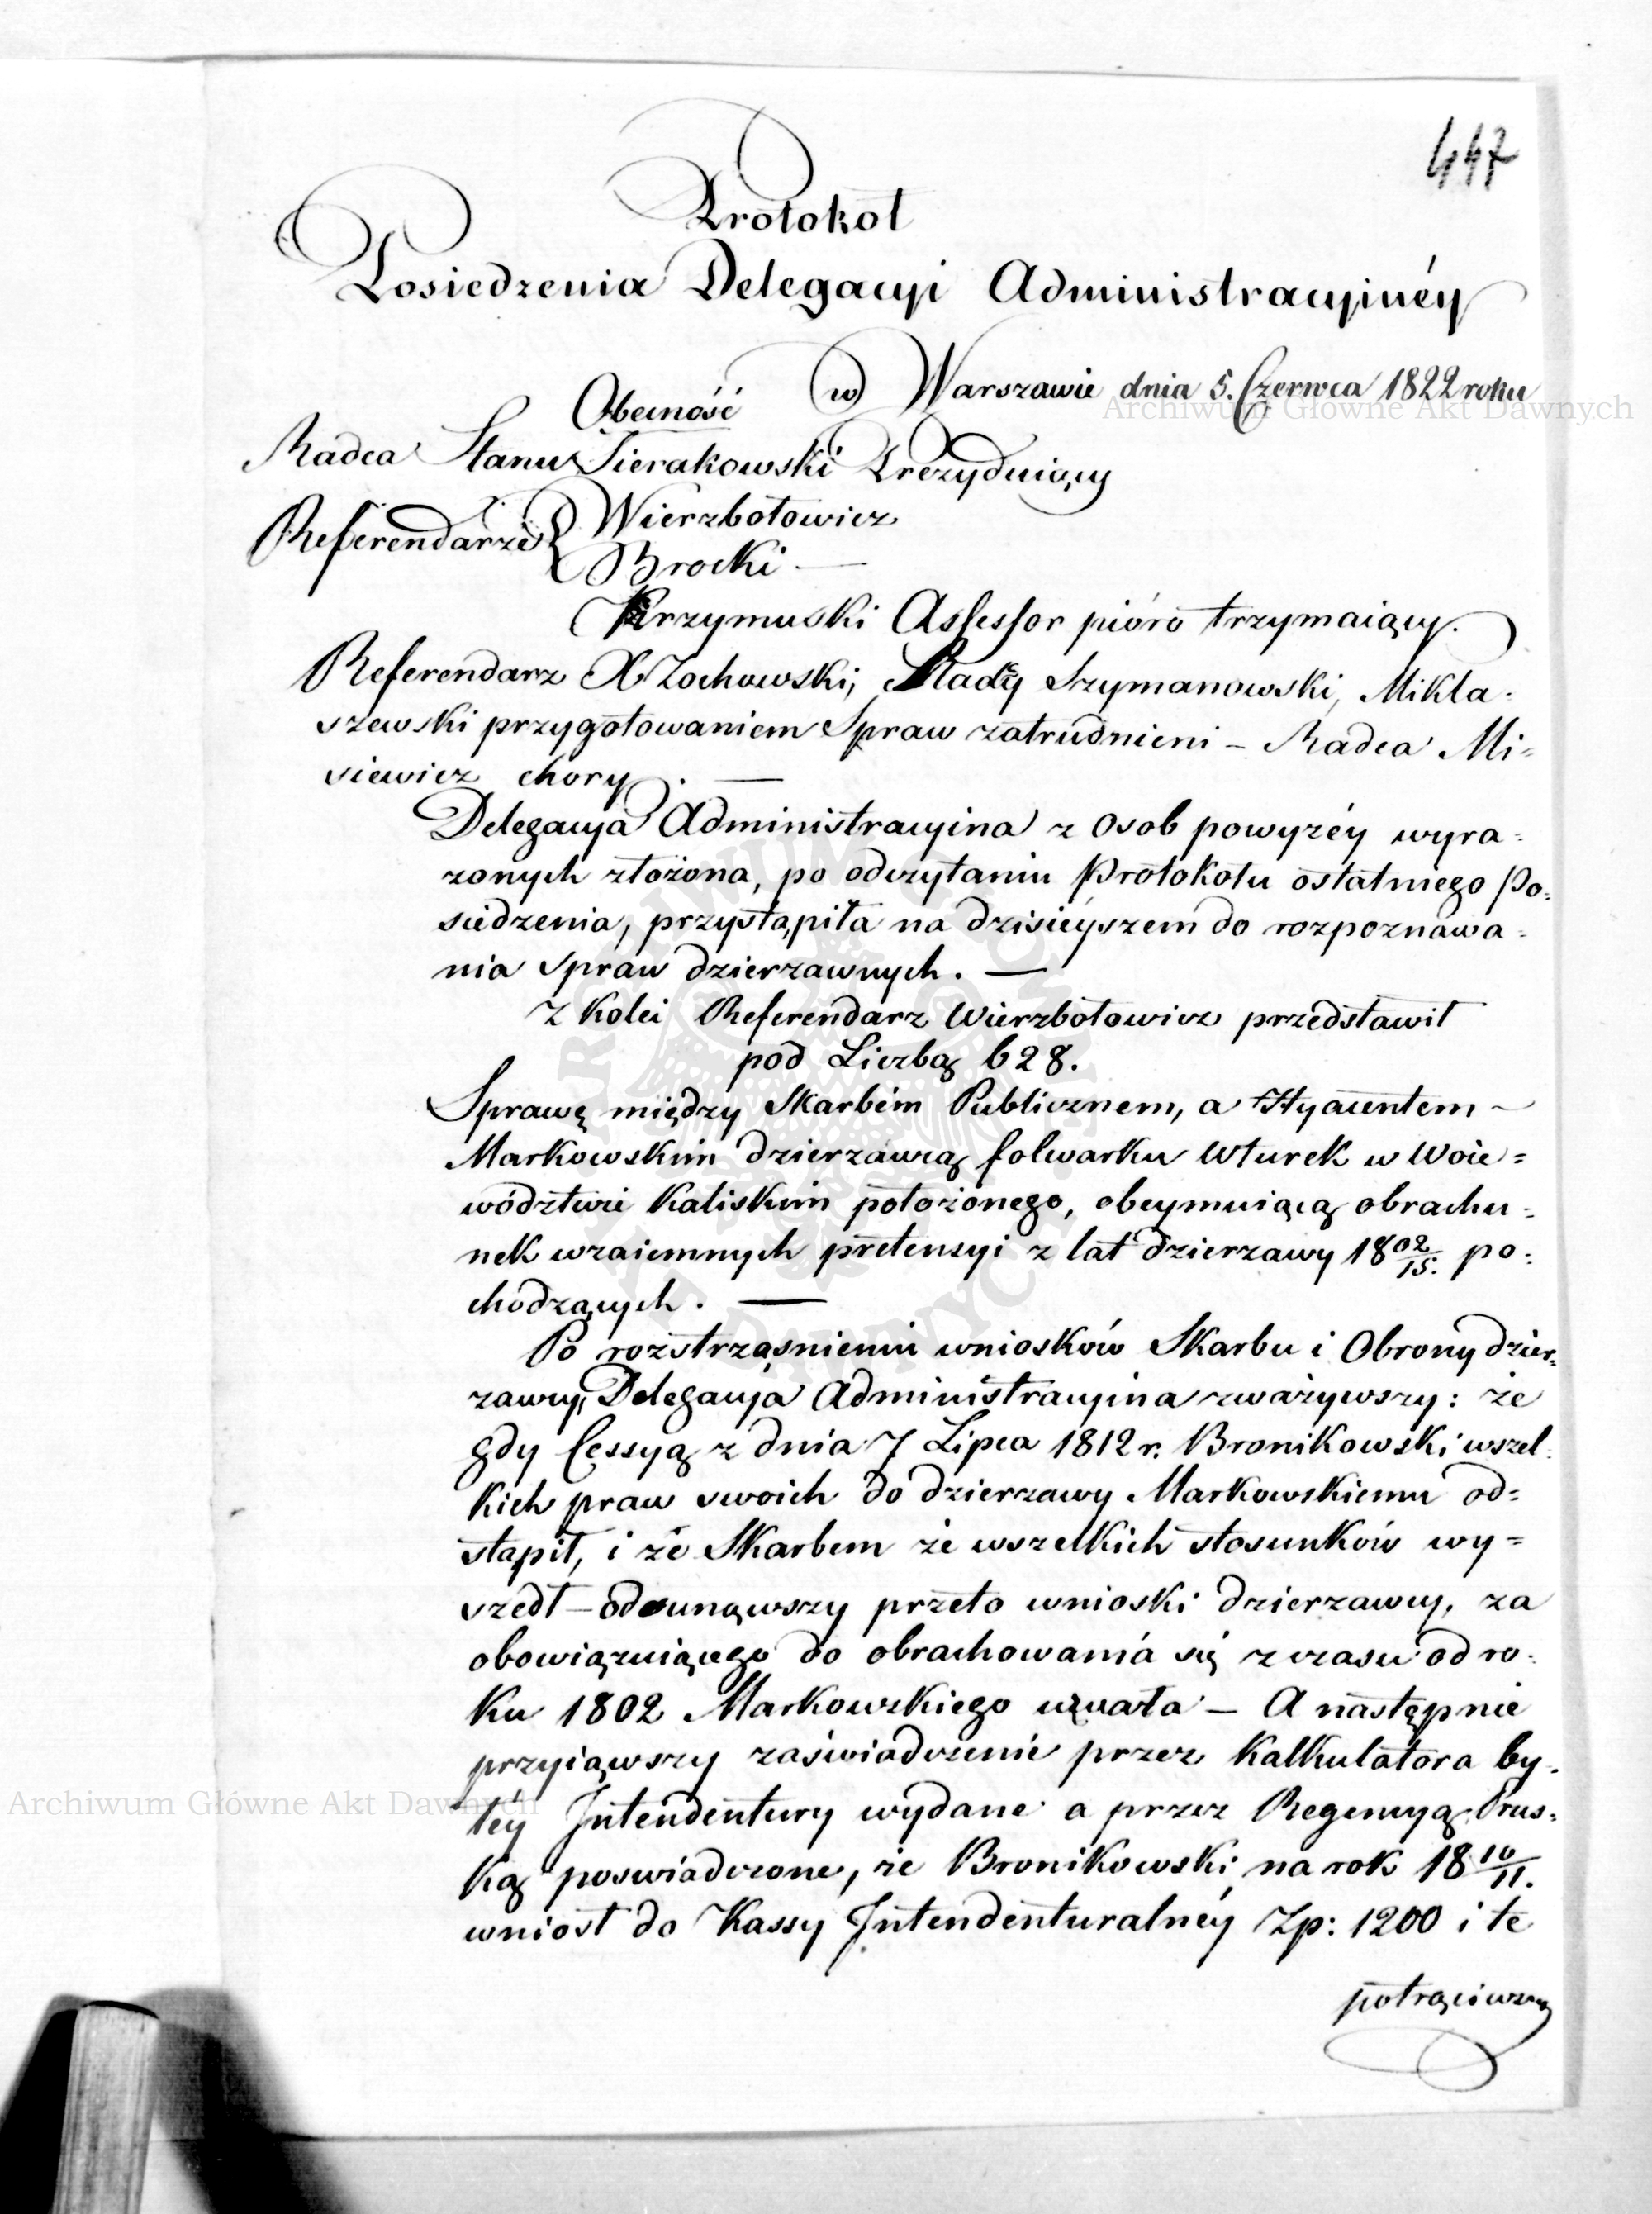 447
Protokół
Posiedzenia Delegacyi Administracyinéy
w Warszawie dnia 5. Czerwca 1822 roku
Obecność
Radca Stanu Sierakowski Prezyduiący
Referendarze { Wierzbołowicz
Brocki —
Krzymuski Assessor pióro trzymaiący.
Referendarz X Zochowski, Radcy Szymanowski, Mikla=
szewski przygotowaniem Spraw zatrudnieni – Radca Mi=
siewicz chory. —
Delegacya Administracyina z Osob powyżéy wyra=
zonych złożona, po odczytaniu Protokołu ostatniego Po=
siedzenia, przystąpiła na dzisieyszem do rozpoznawa=
nia Spraw dzierzawnych. —
Z Kolei Referendarz Wierzbołowicz przedstawił
pod Liczbą 628.
Sprawę między Skarbem Publicznem, a Hyacentem –
Markowskim dzierzawcą folwarku Wturek w Woie=
wództwie Kaliskim położonego, obeymuiącą obrachu=
nek wzaiemnych pretensyi z lat dzierzawy 18 02/15. po=
chodzących. —
Po roztrząsnieniu wniosków Skarbu i Obrony dzier=
zawcy, Delegacyja Administracyina zważywszy: że
gdy Cessyą z dnia 7 Lipca 1812 r. Bronikowski wszel=
kich praw swoich do dzierzawy Markowskiemu od=
stąpił, i ze Skarbem ze wszelkich stosunków wy=
szedł – odsunąwszy przeto wnioski dzierzawcy, za
obowiązuiącego do obrachowania się z czasu od ro=
ku 1802 Markowskiego uznała – A następnie
przyiąwszy zaświadczenie przez Kalkulatora by=
łéy Intendentury wydane a przez Regencyą Prus=
ką poswiadczone, że Bronikowski na rok 18 10/11.
wniosł do Kassy Intendenturalnéy Zp: 1200 i te
potrąciwszy
Archiwum Główne Akt Dawnych
Archiwum Główne Akt Dawnych